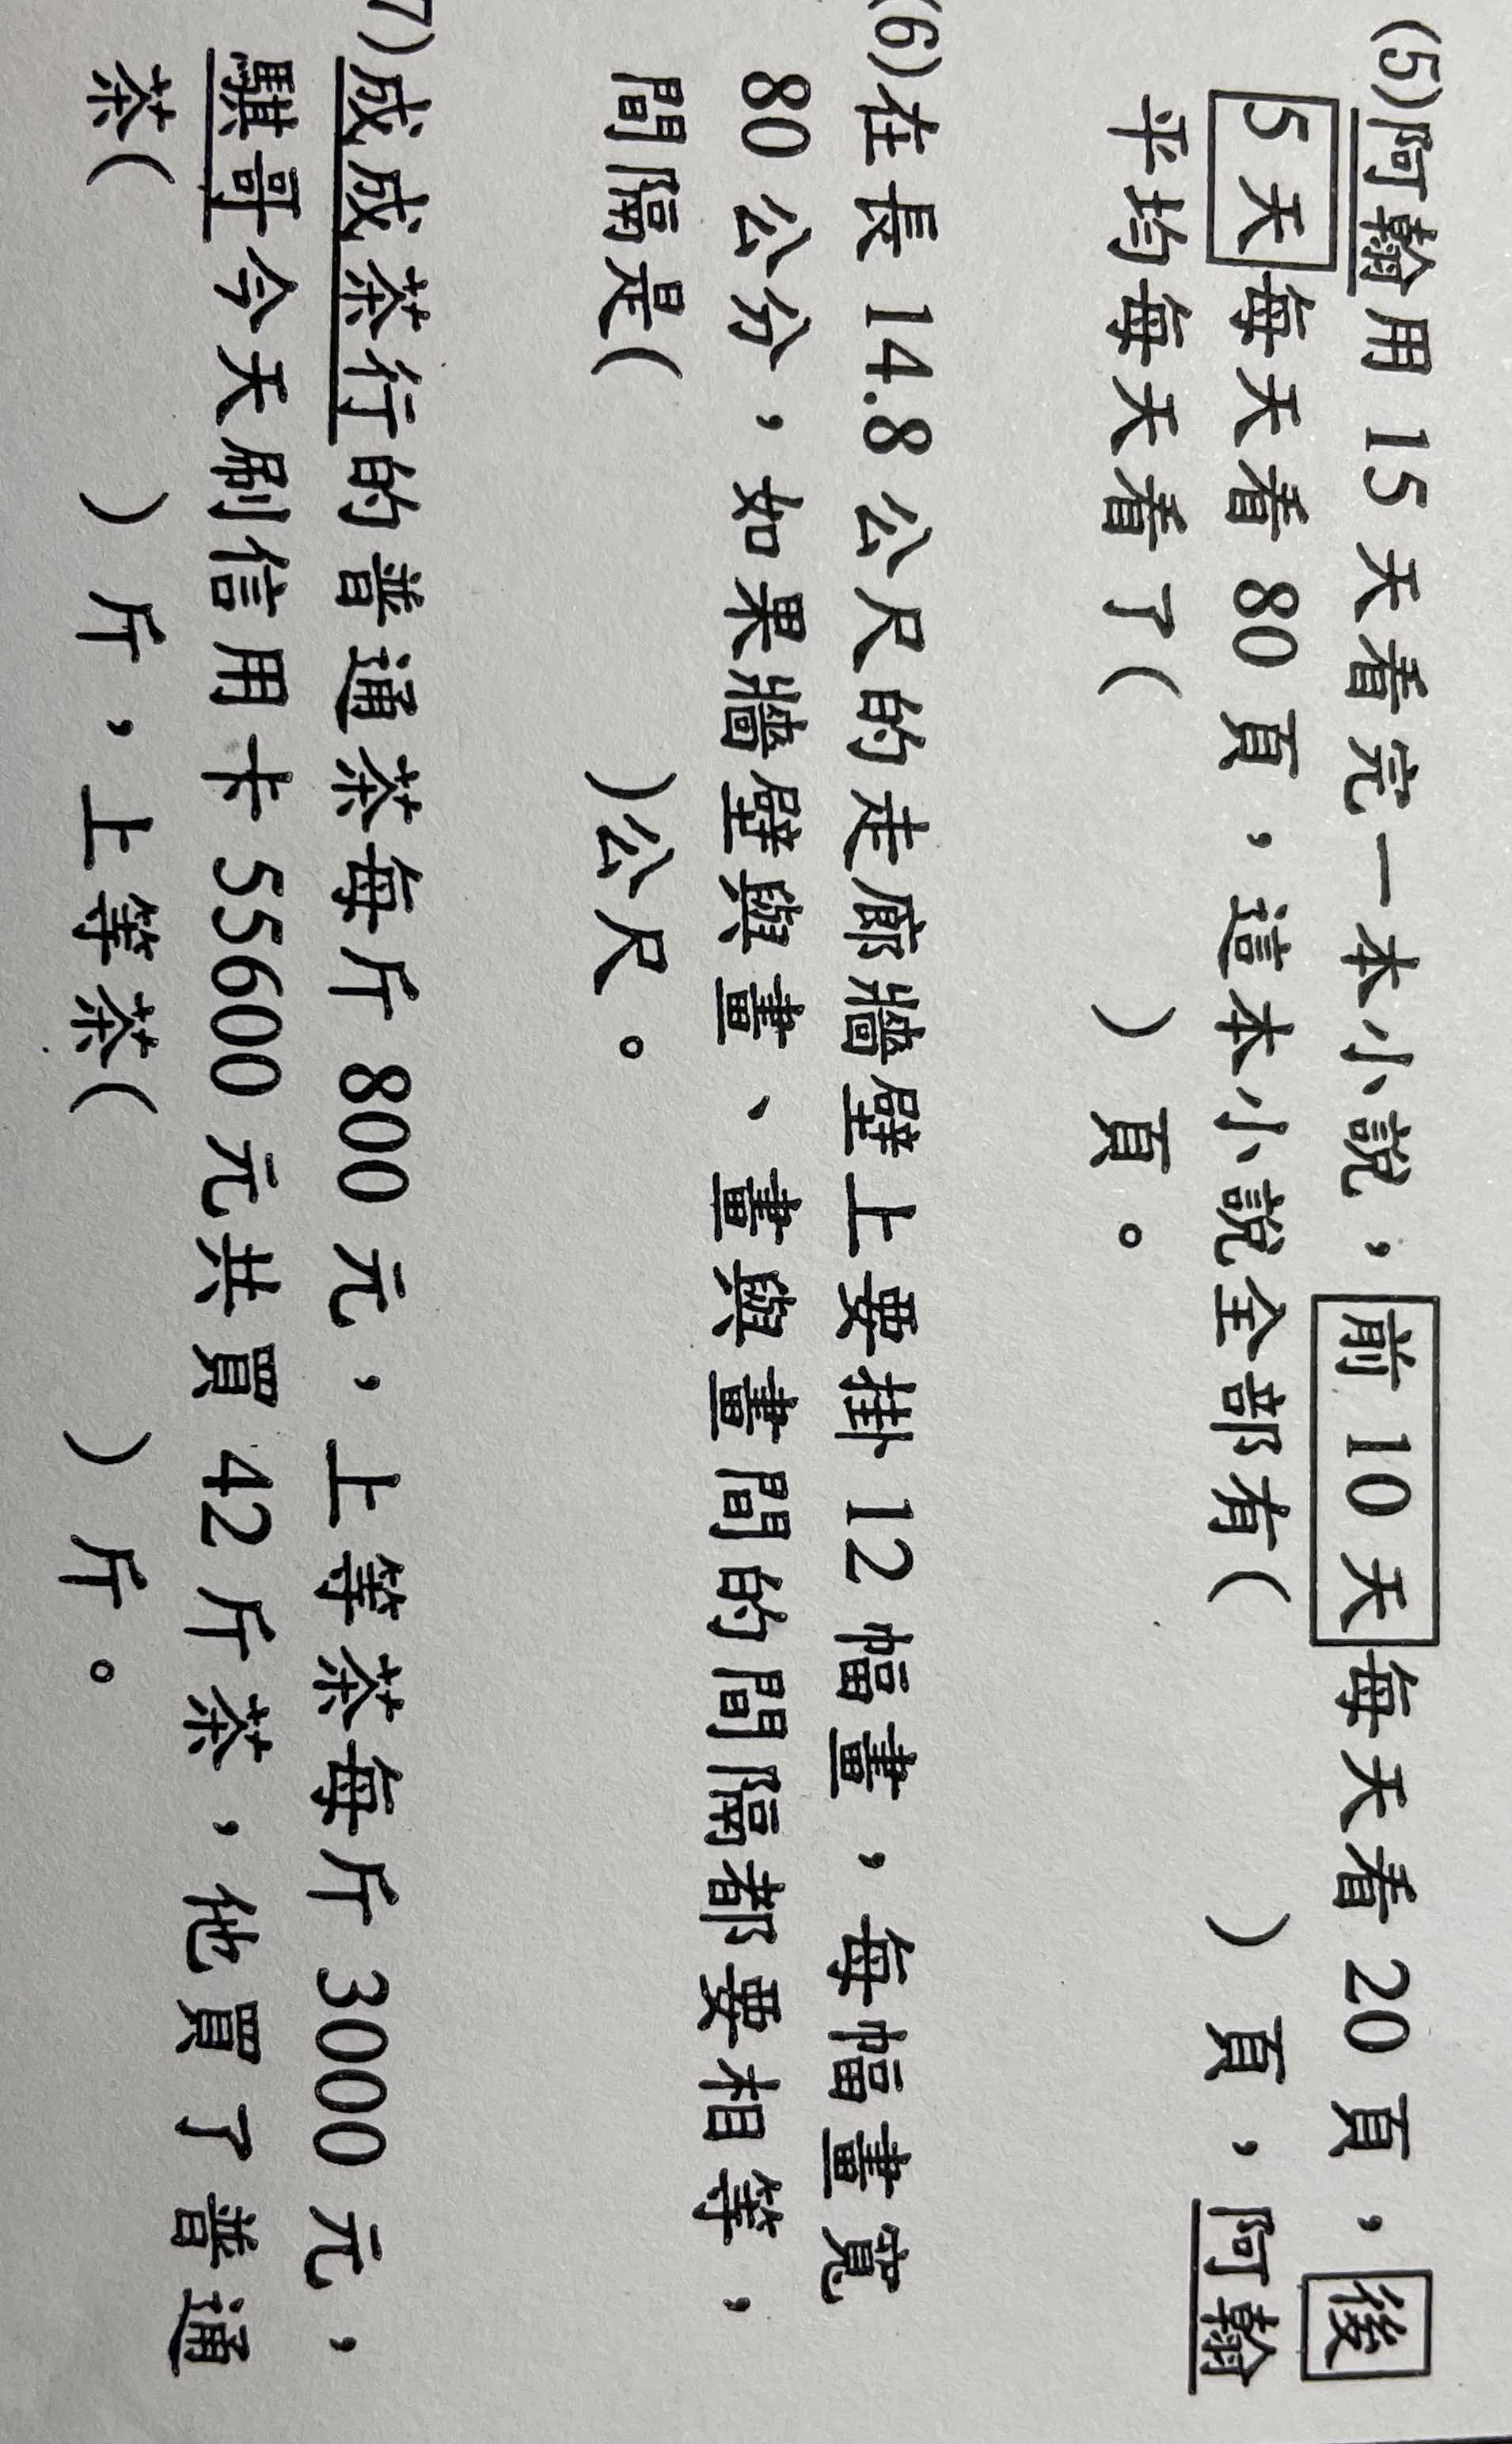 (5)阿翰用 15 天看完一本小說，前 10 天每天看 20 頁，後
5 天每天看 80 頁，這本小說全部有(　　　)頁，阿翰
平均每天看了(　　　)頁。
(6)在長 14.8 公尺的走廊牆壁上要掛 12 幅畫，每幅畫寬
80 公分，如果牆壁與畫、畫與畫間的間隔都要相等，
間隔是(　　　)公尺。
7)成成茶行的普通茶每斤 800 元，上等茶每斤 3000 元，
騏哥今天刷信用卡 55600 元共買 42 斤茶，他買了普通
茶(　　　)斤，上等茶(　　　)斤。